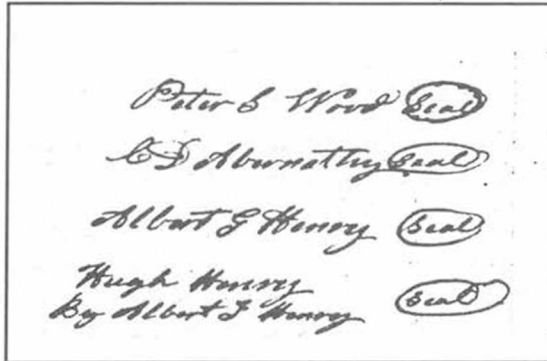 Peter S Wood Seal
C D Abernathy Seal
Albert G Henry Seal
Hugh Henry
By Albert G Henry Seal